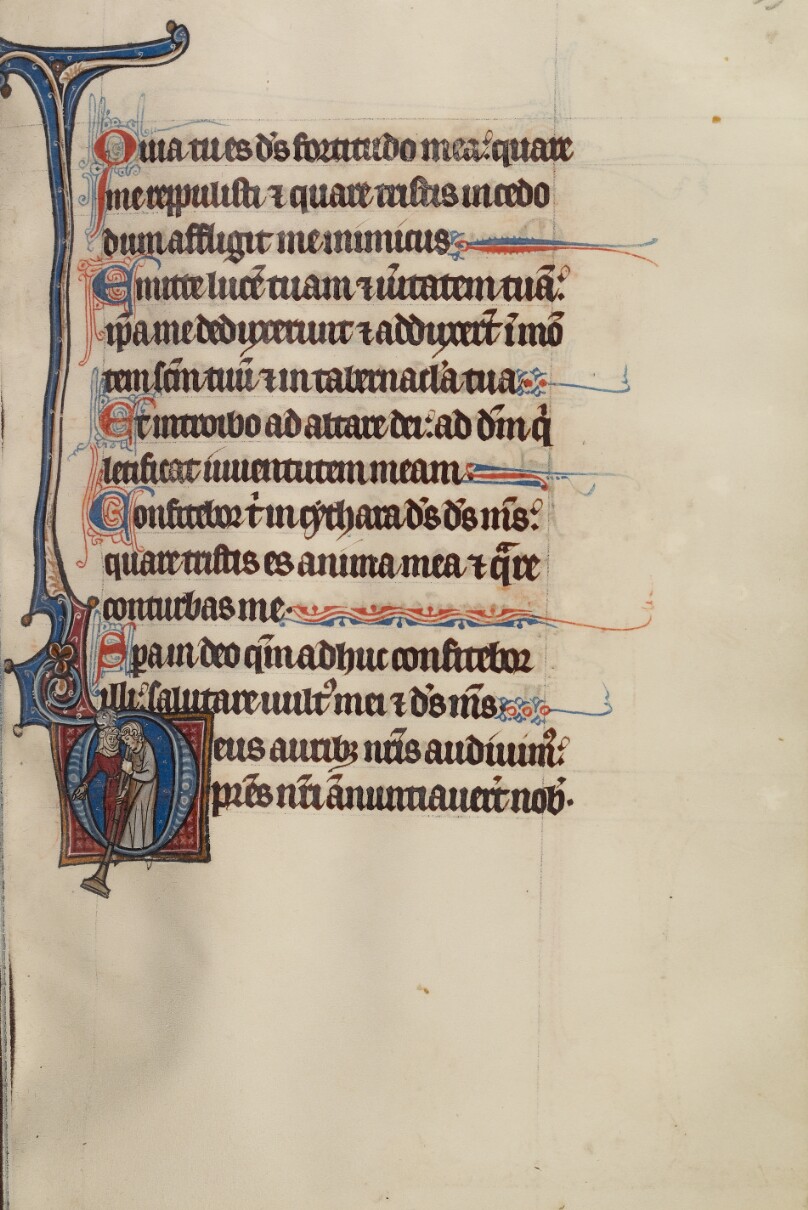 Quia tu es d̄s fortitudo mea: quare
me reppulisti ⁊ quare tristis incedo
dum affligit me inimicus
Emitte lucē tuam ⁊ ūitatem tuā:
ip̄a me deduxerunt ⁊ adduxer̄t ī mō
tem sc̄m tuū ⁊ in tabernacl̄a tua
Et introibo ad altare dei: ad dm̄ q̇
letificat iuuentutem meam
Confitebor ṫ in cythara d̄s d̄s m̄s:
quare tristis es anima mea ⁊ q̄re
conturbas me·
Spa in deo qm̄ adhuc confitebor
illi: salutare uult᾽ mei ⁊ d̄s m̄s
Deus aurib; nr̄is audiuim᾽:
pr̄es nr̄i ānuntiauer̄t nob̄·